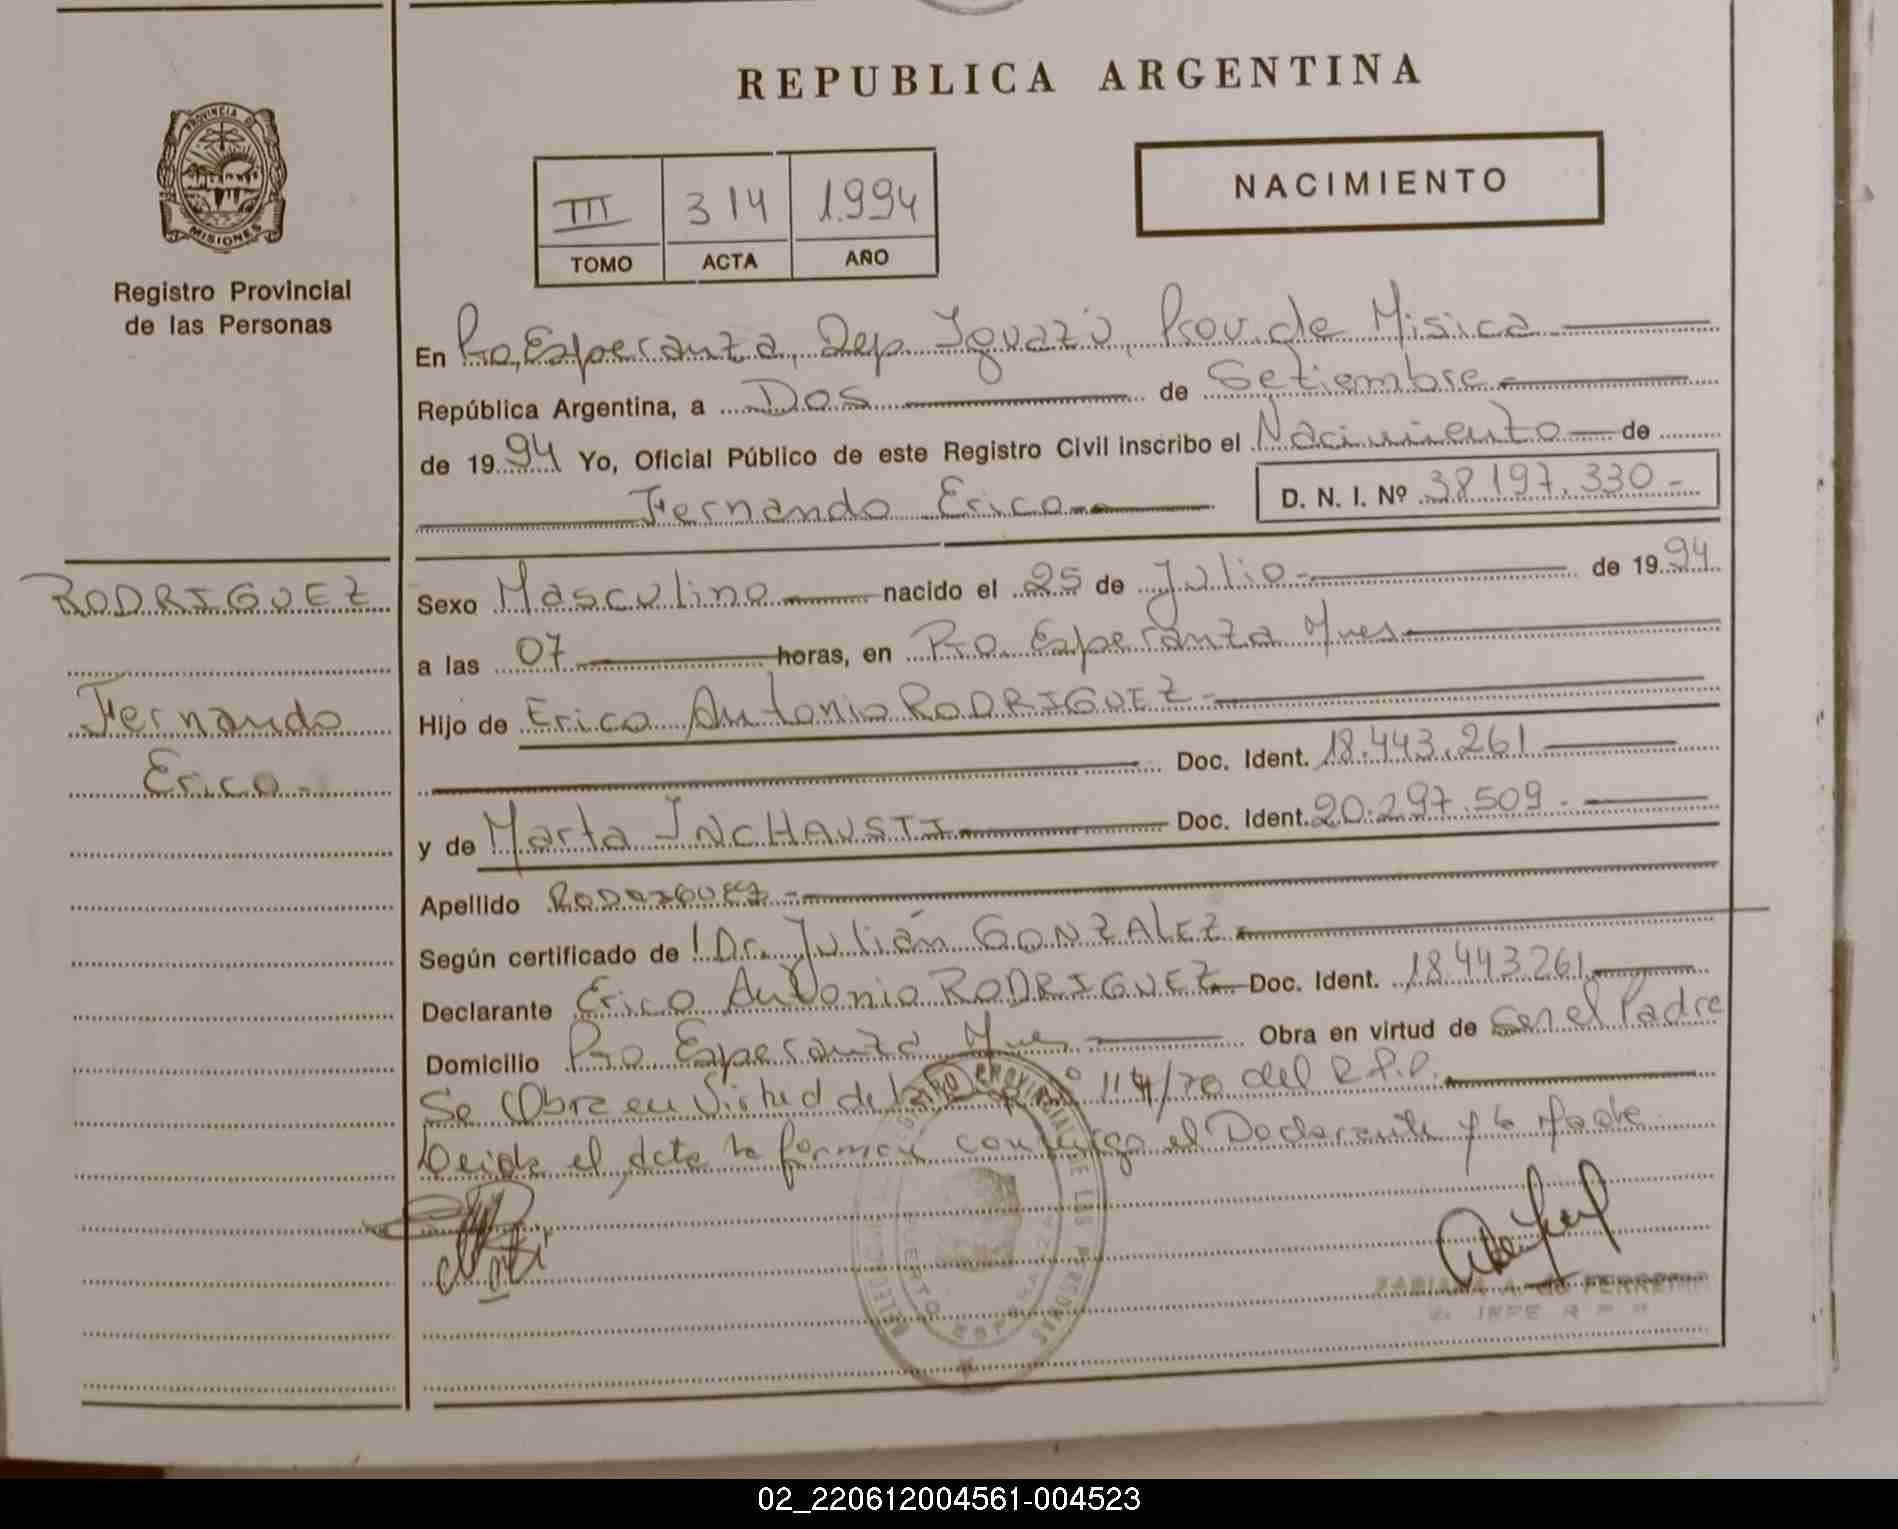 REPUBLICA ARGENTINA
PROVINCIA DE
MISIONES
Registro Provincial
de las Personas
III 314 1994
TOMO ACTA AÑO
NACIMIENTO
En Pto, Esperanza, Dep. Iguazú, Prov. de
República Argentina, a Dos de Setiembre
de 1994 Yo, Oficial Público de este Registro Civil inscribo el Nacimiento de
Fernando Erico D. N. I. Nº 38197.330
RODRIGUEZ
Fernando
Erico
Sexo Masculino nacido el 25 de Julio de 1994
a las 07 horas, en Pto. Esperanza Mnes
Hijo de Erico Antonio RODRIGUEZ
Doc. Ident. 18.443.261
y de Marta INCHAUSTI Doc. Ident. 20.297.509
Apellido RODRIGUEZ
Según certificado de Dr. Julián GONZALEZ
Declarante Erico Antonio RODRIGUEZ Doc. Ident. 18443261
Domicilio Pto Esperanza Mnes Obra en virtud de Ser el Padre
Se Obra en Virtud de la 114/70 del R.P.P.
Leida el acta la forman conmigo el Declarante y la Madre
PROVINCIAL DE LAS PERSONAS
PUERTO ESPERANZA
FABIANA A. de FERREYRA
JEFE R P P
02_220612004561-004523